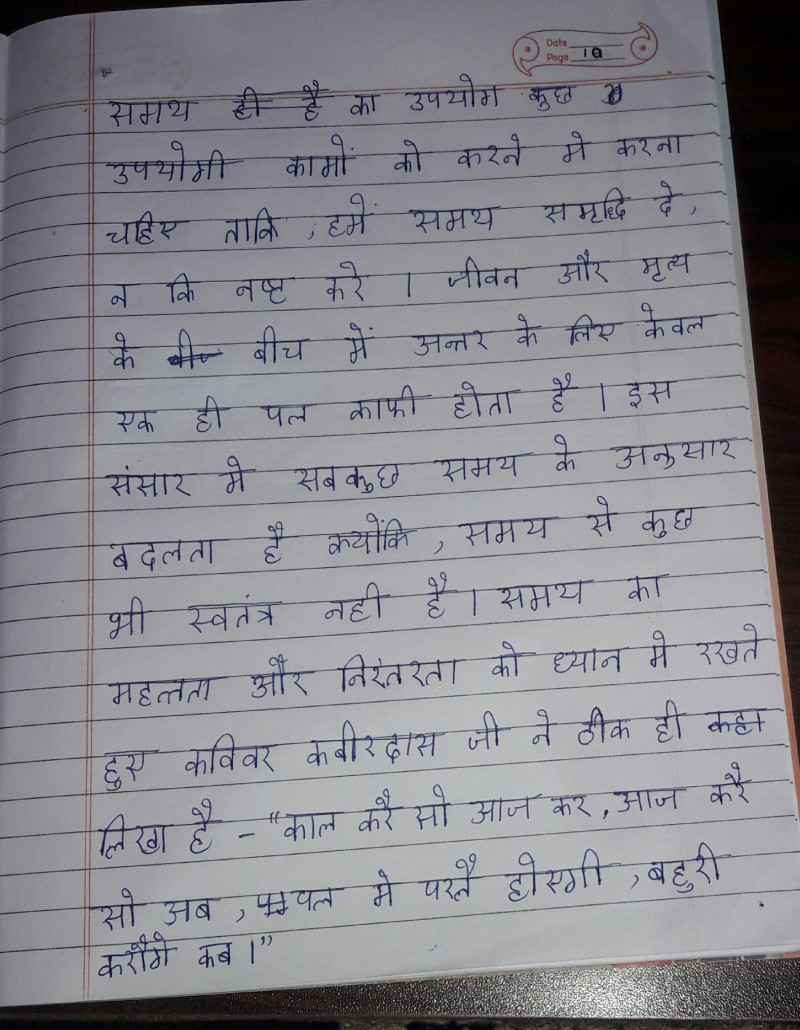 Date
Page 10
समय ही है का उपयोग कुछ
उपयोगी कामों को करने मे करना
चहिए ताकि, हमें समय समृद्धि दे,
न कि नष्ट करे । जीवन और मृत्य
के बीच में अन्तर के लिए केवल
एक ही पल काफी होता है । इस
संसार मे सबकुछ समय के अनुसार
बदलता है क्योंकि, समय से कुछ
भी स्वतंत्र नही है । समय का
महत्तता और निरंतरता को ध्यान मे रखते
हुए कविवर कबीरदास जी ने ठीक ही कहा
लिखा है - "काल करै सो आज कर, आज करै
सो अब, पल मे परलै होएगी, बहुरी
करौगे कब ।"